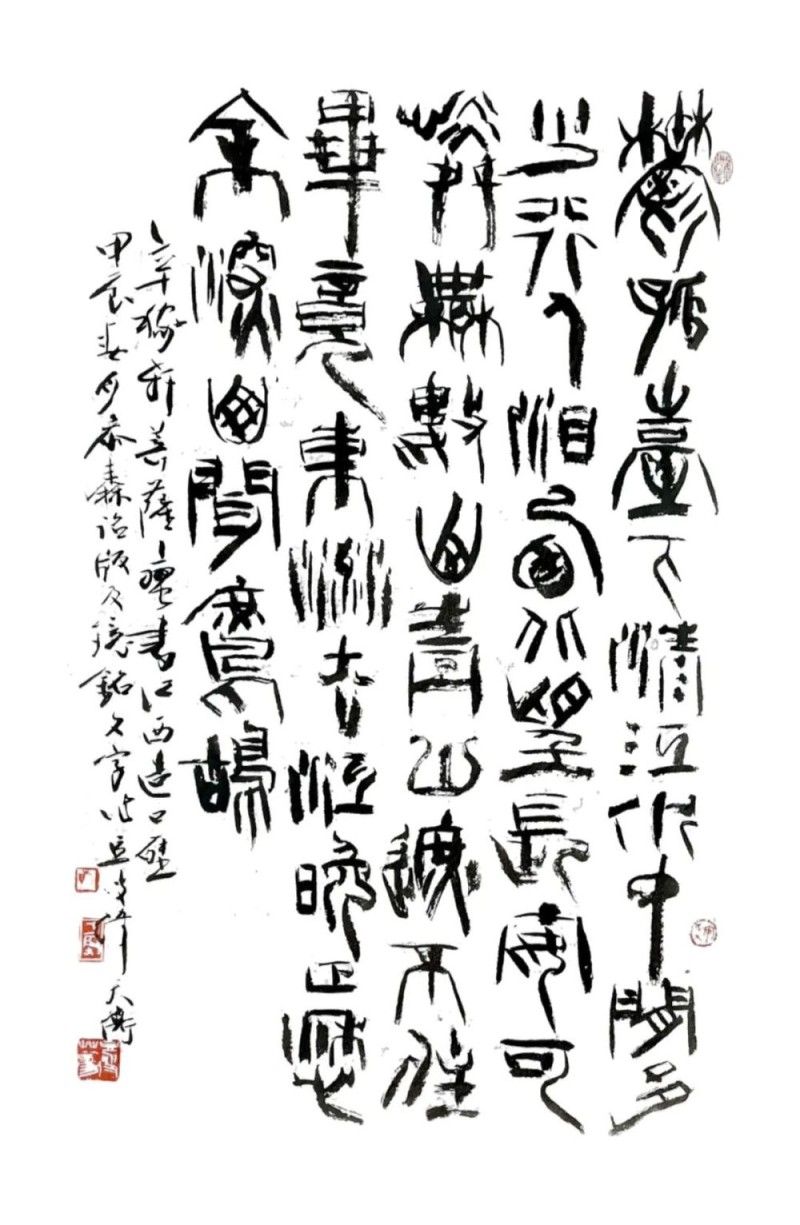 鬱孤臺下清江水中間多
少行人淚西北望長安可
憐無數山青山遮不住
畢竟東流去江晚正愁
余深山聞鷓鴣
辛稼軒菩薩蠻書江西造口壁
甲辰春月 詔版及鏡銘文字